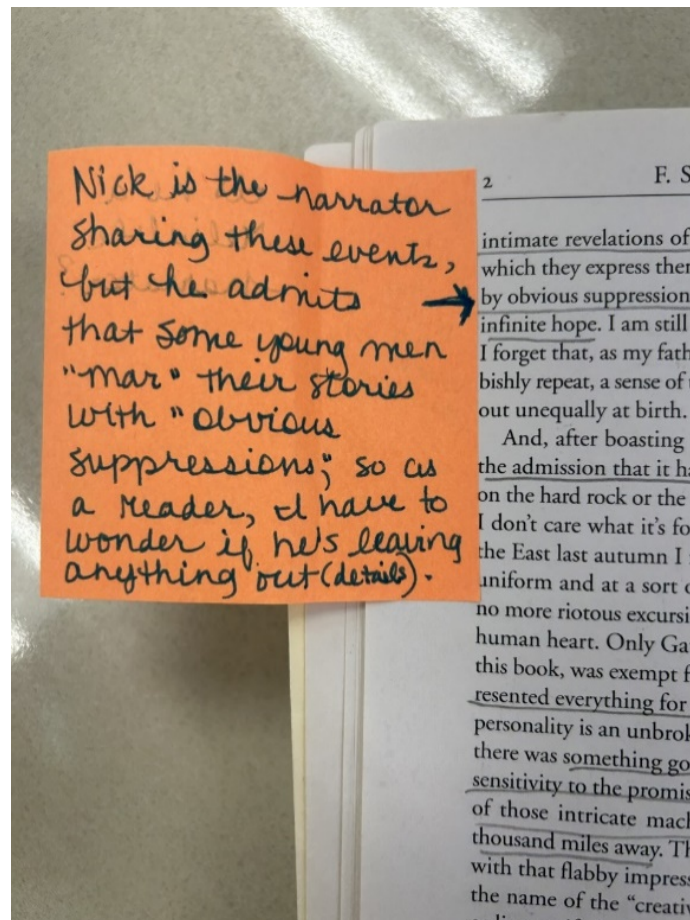 Nick is the narrator
sharing these events,
but he admits
that some young men
"mar" their stories
with "obvious
suppressions," so as
a reader, I have to
wonder if he's leaving
anything out (details).
2 F. S
intimate revelations of
which they express ther
by obvious suppression
infinite hope. I am still
I forget that, as my fath
bishly repeat, a sense of
out unequally at birth.
And, after boasting
the admission that it ha
on the hard rock or the
I don't care what it's fo
the East last autumn I
uniform and at a sort
no more riotous excursi
human heart. Only Ga
this book, was exempt f
resented everything for
personality is an unbrok
there was something go
sensitivity to the promis
of those intricate mach
thousand miles away. Th
with that flabby impress
the name of the "creativ